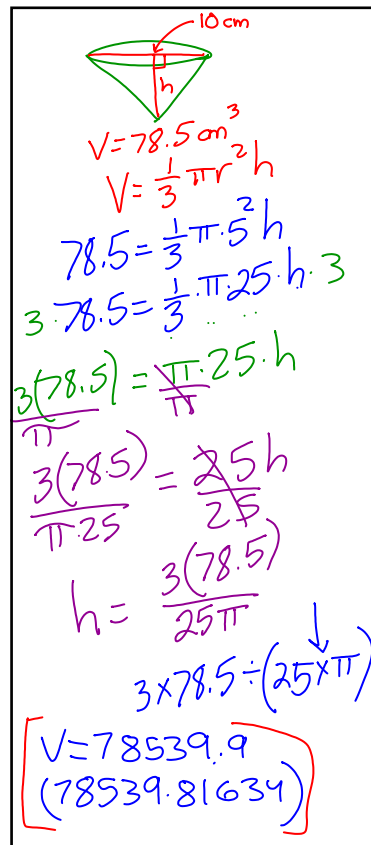 10 cm
h
V=78.5 cm³
V= 1/3 πr²h
78.5= 1/3 π·5²h
3·78.5= 1/3·π·25·h·3
3(78.5)/π = π·25·h/π
3(78.5)/π·25 = 25h/25
h= 3(78.5)/25π
3×78.5÷(25×π)
V=78539.9
(78539.81634)